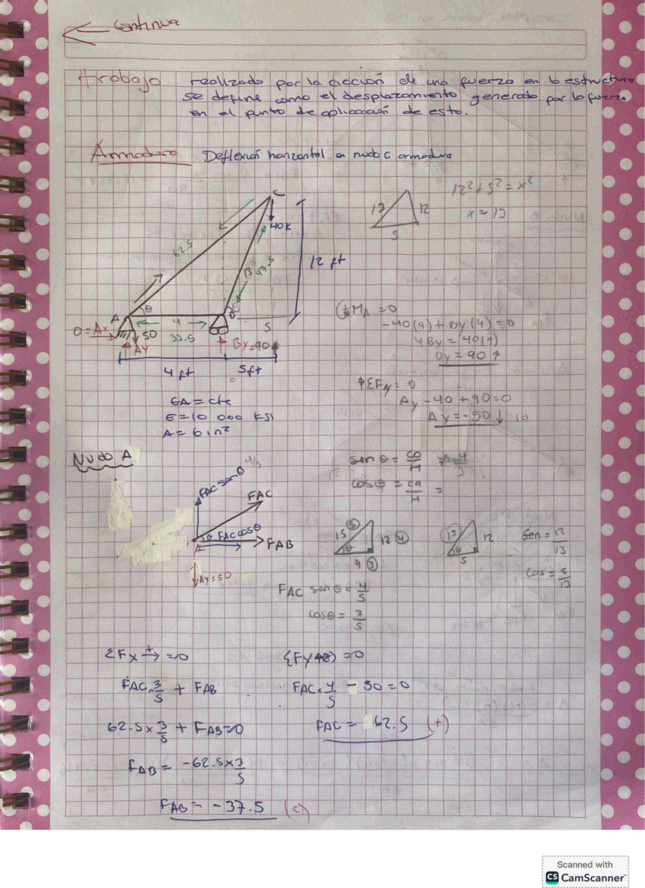 Continua
Trabajo realizado por la acción de una fuerza en la estructura
se define como el desplazamiento generado por la fuerza
en el punto de aplicación de esta.
Armadura Deflexión horizontal en nudo C armadura
C
40K
62.5
13
12 ft
13 12
5
12² + 5² = x²
x = 13
A θ
4
33.5
5
0 = Ax
50
Ay
By=90
4 ft 5 ft
EA = cte
E = 10 000 KSI
A = 6 in²
MA = 0
-40(9) + By(4) = 0
4By = 40(9)
By = 90 ↑
+ΣFy = 0
Ay - 40 + 90 = 0
Ay = -50 ↓
Nudo A
FAC senθ
FAC
θ FAC cosθ
FAB
Ay = 50
sen θ = co/H
cos θ = ca/H =
15 ⑤ 12 ④
9 ③
13 12
5
Sen = 12/13
Cos = 5/13
FAC sen θ = 4/5
cosθ = 3/5
ΣFx → = 0
FAC 3/5 + FAB
62.5 x 3/5 + FAB = 0
FAB = -62.5 x 3/5
FAB = -37.5 (c)
ΣFy = 0
FAC · 4/5 - 50 = 0
FAC = 62.5 (+)
Scanned with
CS CamScanner